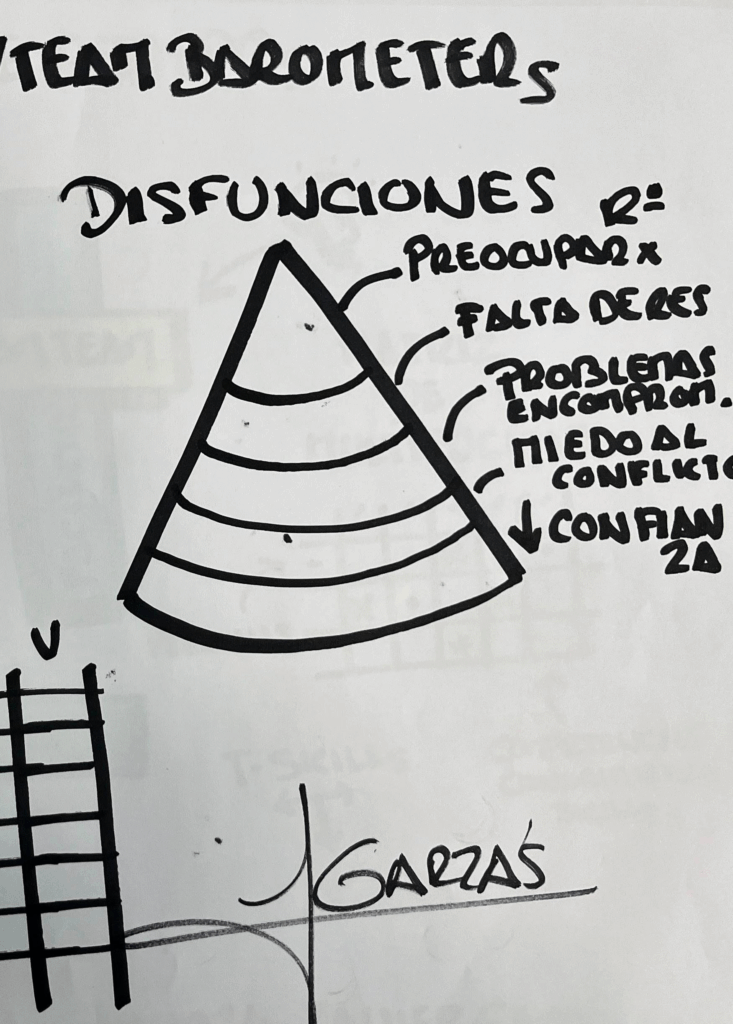 /TEAM BAROMETERS
DISFUNCIONES
Rº
PREOCUPAR X
FALTA DE RES
PROBLEMAS
EN COMPROM.
MIEDO AL
CONFLICTO
↓ CONFIAN
ZA
V
JGARZÁS